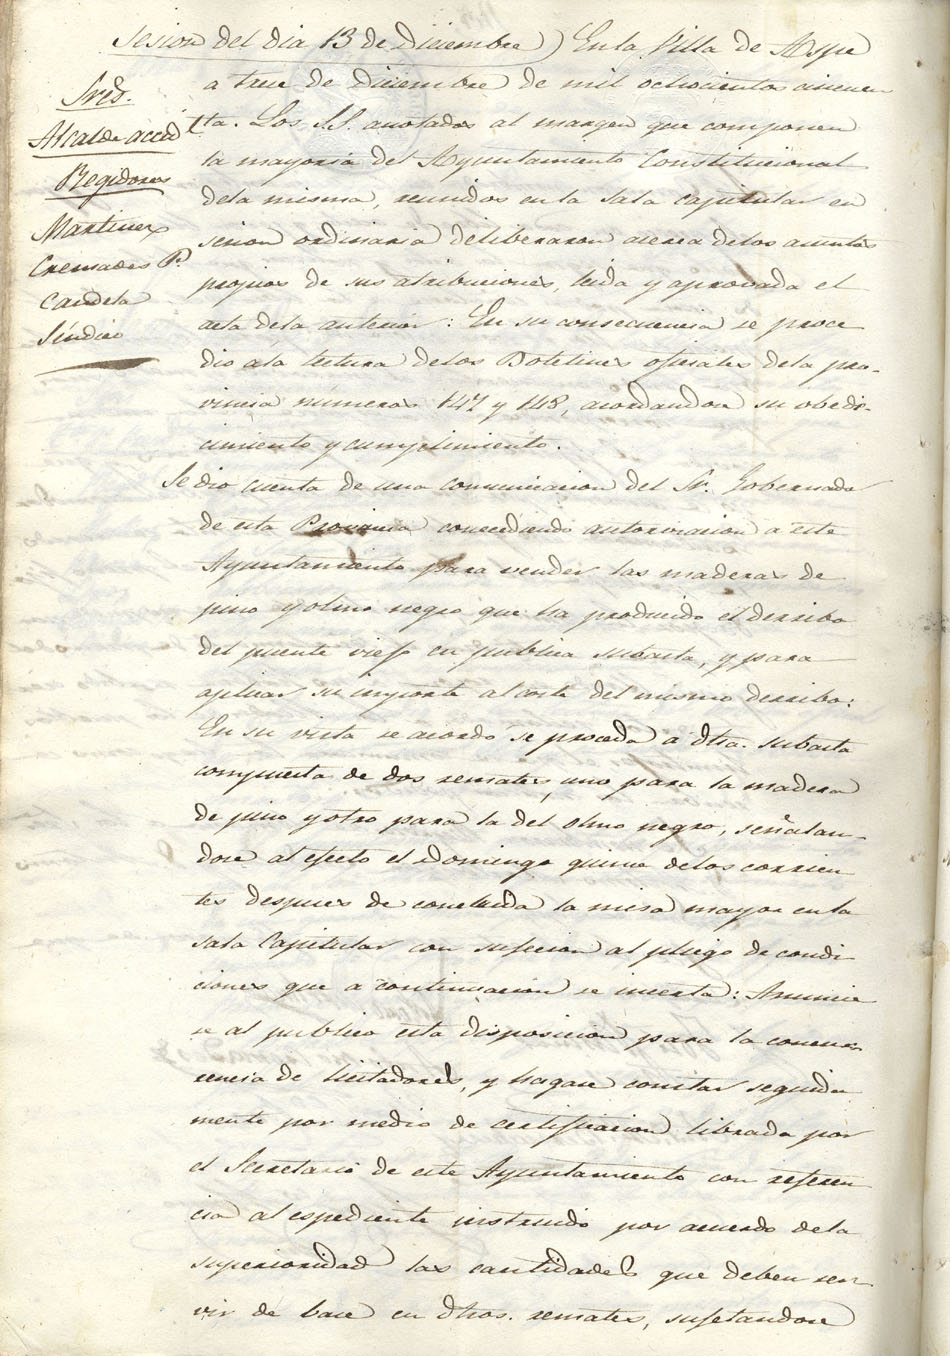 Sesion del dia 13 de Diciembre) En la Villa de Aspe
a trece de diciembre de mil ochocientos cincuen
ta. Los SS. anotados al margen que componen
la mayoria del Ayuntamiento Constitucional
dela misma, reunidos en la sala capitular en
sesion ordinaria deliberaron acerca delos asuntos
propios de sus atribuciones, leida y aprovada el
acta dela anterior: En su consecuencia se proce
dio ala lectura delos Boletines oficiales dela pro-
vincia números 147 y 148, acordandose su obede-
cimiento y cumplimiento.
Sres.
Alcalde accidl
Regidores
Martinez
Cremades P.
Candela
Síndico
Se dio cuenta de una comunicacion del Sr. Gobernador
de esta Provincia concediendo autorizacion a este
Ayuntamiento para vender las maderas de
pino y olmo negro que ha producido el derribo
del puente viejo en publica subasta, y para
aplicar su importe al coste del mismo derribo:
En su vista se acordó se proceda á dha. subasta
compuesta de dos remates, uno para la madera
de pino y otro para la del olmo negro, señalan-
dose al efecto el Domingo quince delos corrien
tes despues de concluida la misa mayor en la
sala Capitular con sujecion al pliego de condi-
ciones que a continuacion se inserta: Anuncie
se al publico esta disposicion para la concur-
rencia de licitadores, y hagase constar seguida
mente por medio de certificacion librada por
el Secretario de este Ayuntamiento con referen
cia al espediente instruido por acuerdo dela
superioridad las cantidades que deben ser-
vir de base en dhos. remates, sujetandose